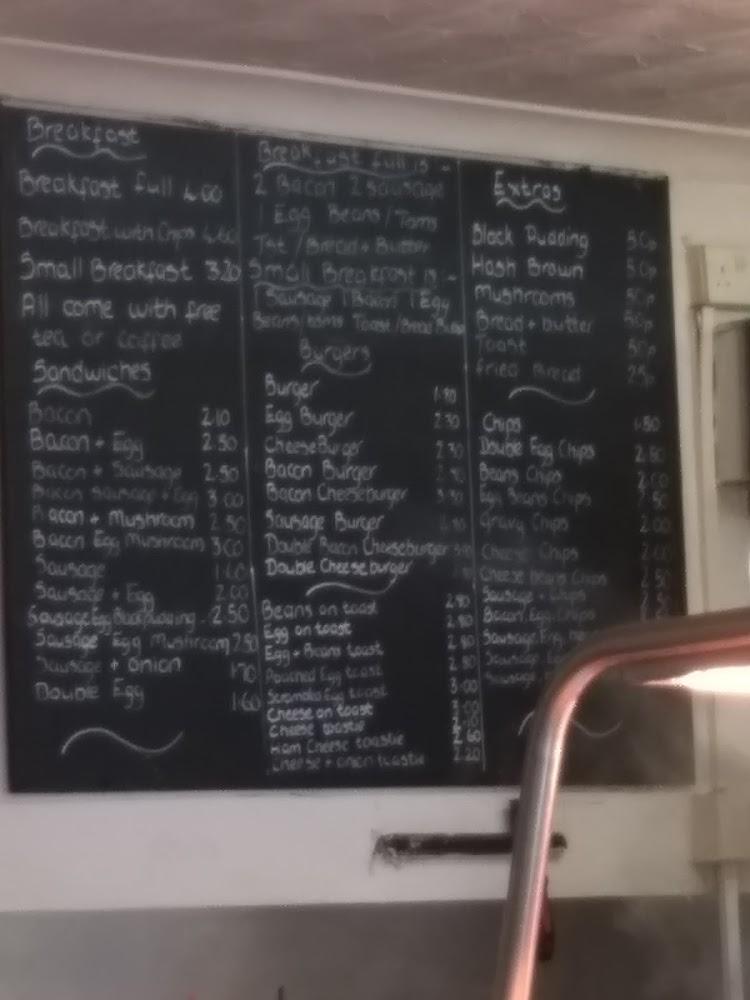 Breakfast
Breakfast full 4.00
Breakfast with Chips
Small Breakfast 3.20
All come with free
tea or coffee
Sandwiches
Bacon 2.10
Bacon + Egg 2.50
Bacon + Sausage 2.50
Bacon Sausage + Egg 3.00
Bacon + Mushroom 2.50
Bacon Egg Mushroom 3.00
Sausage 1.60
Sausage + Egg 2.00
Sausage Egg Blackpudding 2.50
Sausage Egg Mushroom 2.50
Sausage + onion 1.70
Double Egg 1.60
Breakfast full is :-
2 Bacon 2 sausage
1 Egg Beans/Toms
Tst/Bread + Butter
Small Breakfast is :-
1 Sausage 1 Bacon 1 Egg
Beans/toms Toast/Bread
Burgers
Burger
Egg Burger 2.30
CheeseBurger 2.30
Bacon Burger
Bacon Cheeseburger
Sausage Burger
Double Bacon Cheeseburger
Double Cheeseburger
Beans on toast
Egg on toast
Egg + Beans toast
Poached Egg toast
Scrambled Egg toast
Cheese on toast
Cheese toastie
Ham Cheese toastie
Cheese + onion toastie 2.20
Extras
Black Pudding 50p
Hash Brown 50p
Mushrooms 50p
Bread + butter 50p
Toast 50p
fried Bread 25p
Chips 1.50
Double Egg Chips
Beans Chips 2.00
Egg Beans Chips 2.50
Gravy Chips 2.00
Cheese Chips 2.00
Cheese Beans Chips 2.50
Sausage + Chips
Bacon Egg Chips
Sausage Egg
Sausage
Sausage